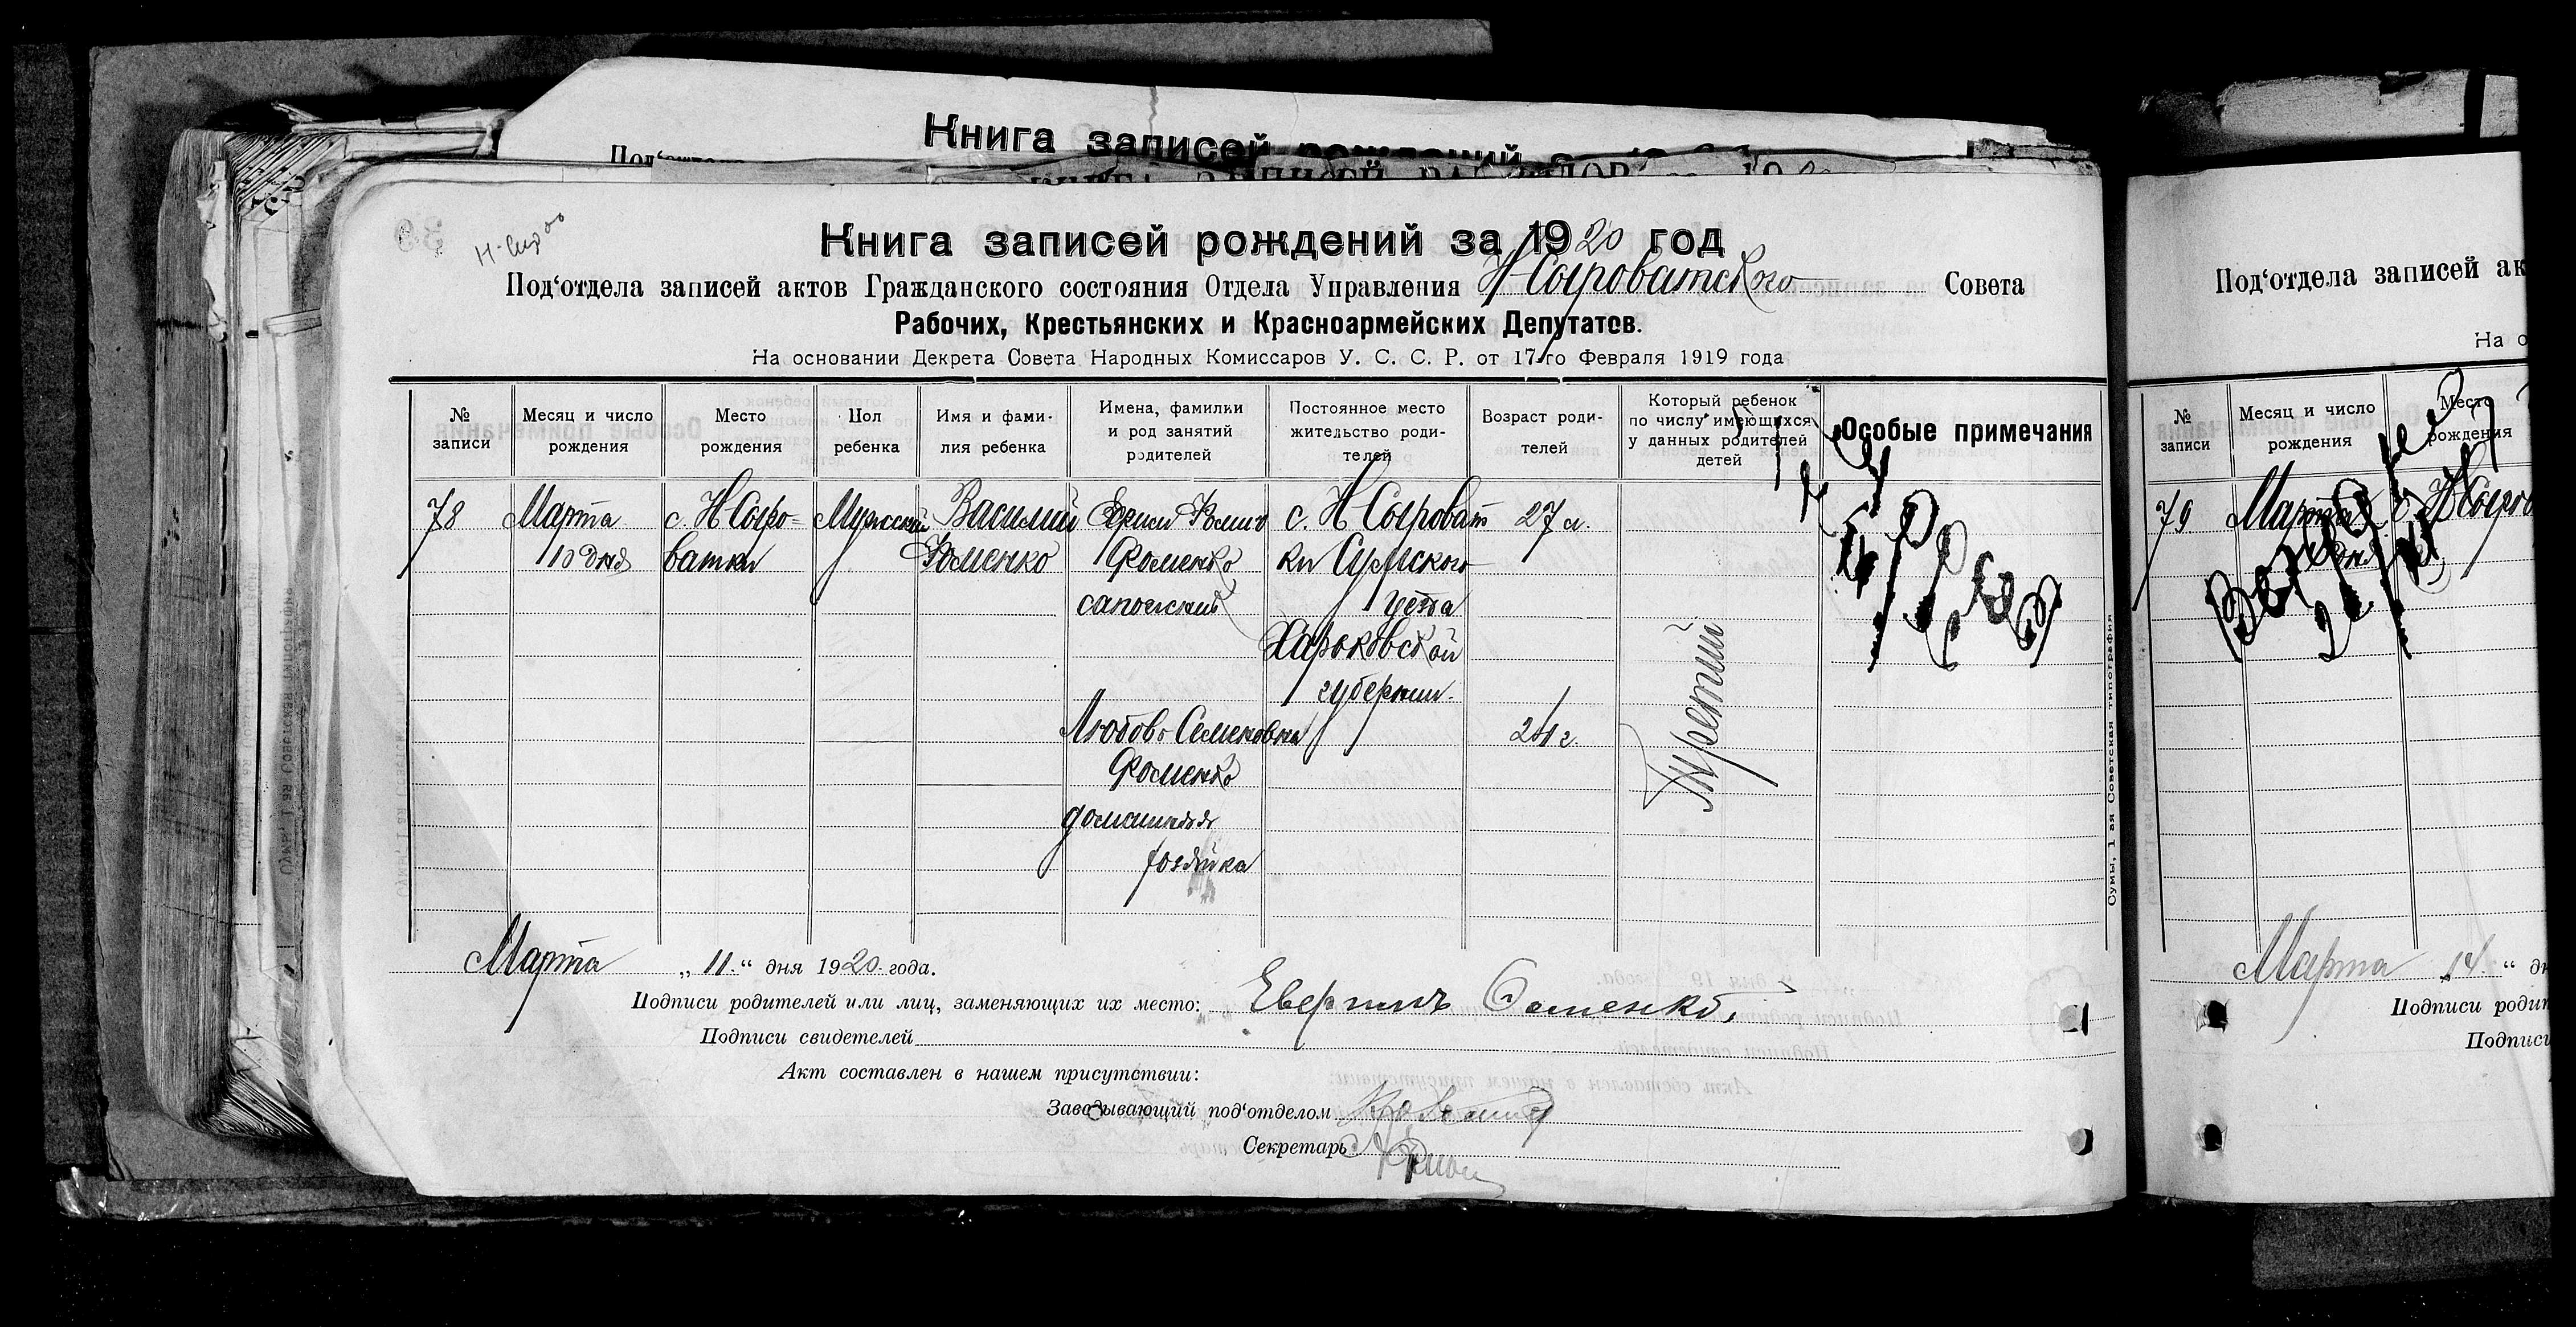 Книга записей
Н-Сыров
Книга записей рождений за 1920 год
Под‘отдела записей актов Гражданского состояния Отдела Управления Н-Сыроватского Совета
Рабочих, Крестьянских и Красноармейских Депутатов.
На основании Декрета Совета Народных Комиссаров У. С. С. Р. от 17-го Февраля 1919 года
№ записи
Месяц и число рождения
Место рождения
Пол ребенка
Имя и фами-
лия ребенка
Имена, фамилии
и род занятий
родителей
Постоянное место
жительство роди-
телей
Возраст роди-
телей
Который ребенок
по числу имеющихся
у данных родителей
детей
Особые примечания
78
Марта
10 дня
с. Н Сыро-
ватки
Мужской
Василий
Фоменко
Фомич
Фоменко
сапожник
с. Н Сыроват
ки Сумского
уезда
Харьковской
губернии.
27 л.
Любовь Семеновна
Фоменко
домашняя
хозяйка
24 г.
Третий
Марта „11.“ дня 1920 года.
Подписи родителей или лиц, заменяющих их место: Фоменко.
Подписи свидетелей
Акт составлен в нашем присутствии:
Заведывающий под‘отделом
Секретарь
Сумы, 1 ая Советская типография
Под‘отдела записей ак
На о
№ записи
Месяц и число рождения
Место рождения
79
Марта
Н Сыров
Марта 14. “ дн
Подписи родит
Подписи